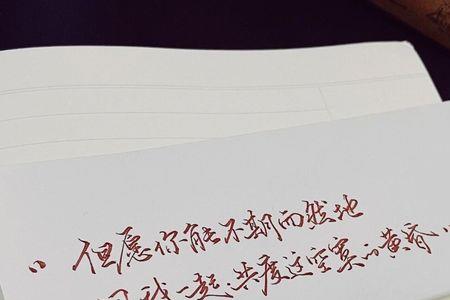 “ 但愿你能不期而然地
同我一起、共度这空寞的黄昏